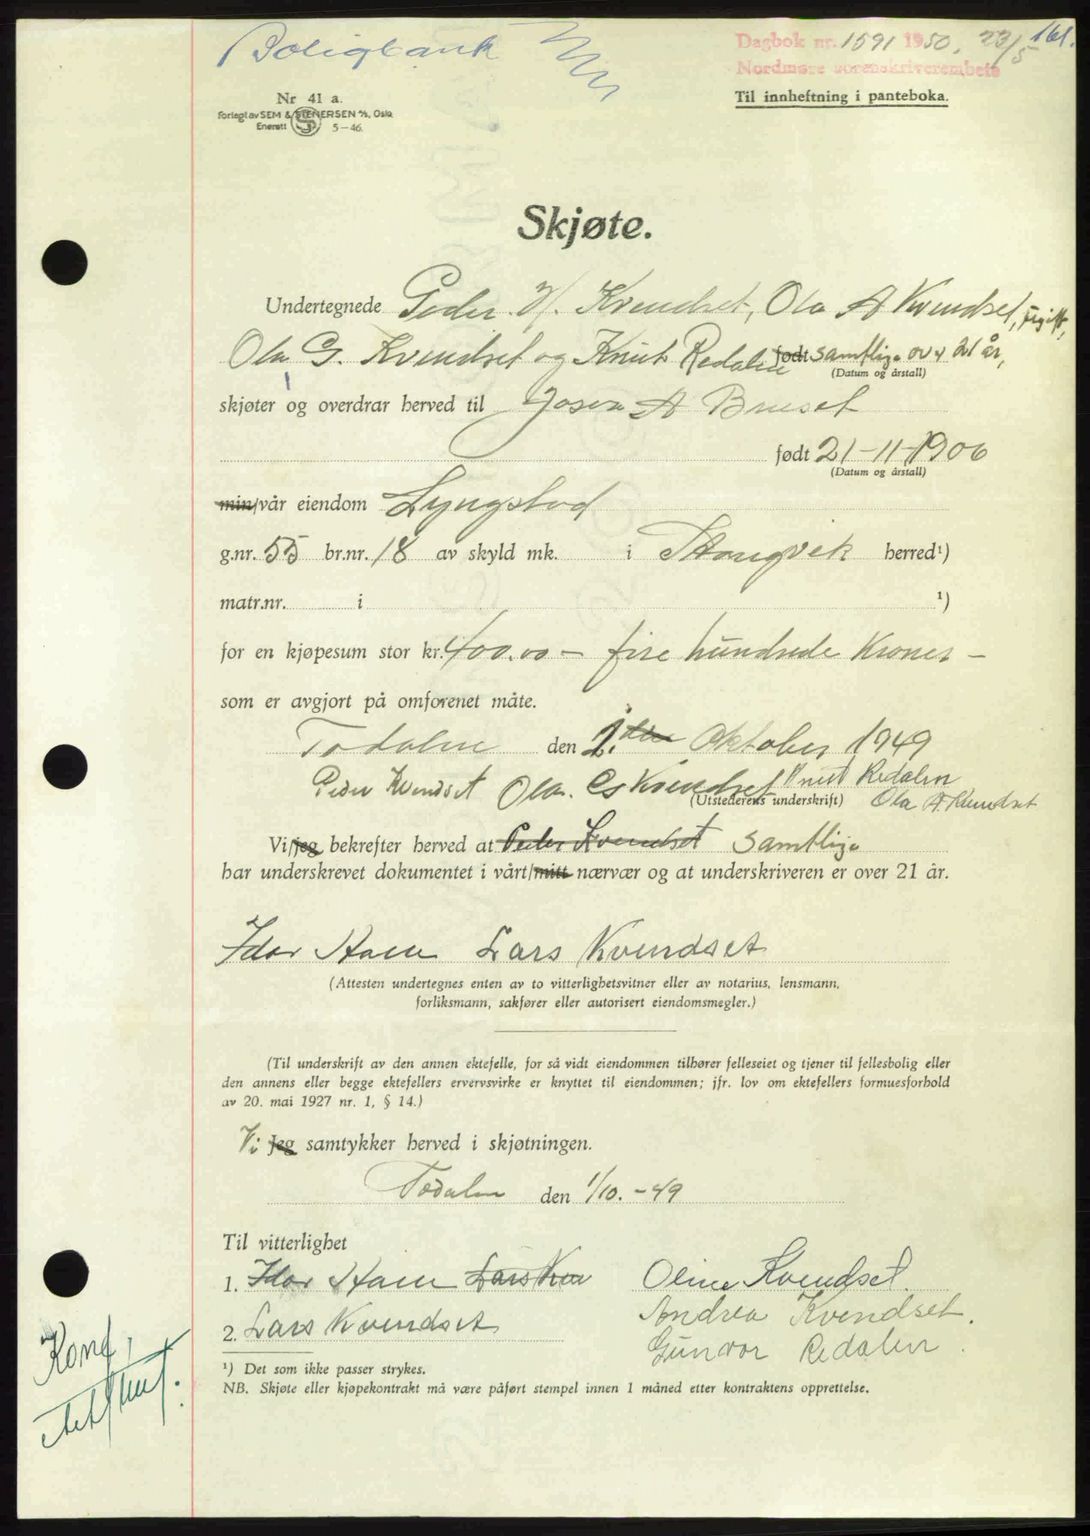 Boligbank
Dagbok nr. 1591 1950. 23/5 161.
Nordmøre sorenskriverembete
Til innheftning i panteboka.
Nr 41 a.
Forlagt av SEM & STENERSEN A/S, Oslo
Enerett S 5-46.
Skjøte.
Undertegnede Peder Kvendset, Ola A Kvendset, ugift,
Ola G. Kvendset og Knut Redalen født samtlige over 21 år,
(Datum og årstall)
skjøter og overdrar herved til A Bruset
født 21-11-1906
(Datum og årstall)
min/vår eiendom Lyngstad
g.nr. 55 br.nr. 18 av skyld mk. i Stangvik herred¹)
matr.nr. i ¹)
for en kjøpesum stor kr. 400.00 - fire hundrede Kroner -
som er avgjort på omforenet måte.
Todalen den 1. oktober 1949
Peder Kvendset Ola G Kvendset Knut Redalen
(Utstederens underskrift) Ola A Kvendset
Vi/jeg bekrefter herved at Peder Kvendset samtlige
har underskrevet dokumentet i vårt/mitt nærvær og at underskriveren er over 21 år.
Idar Lars Kvendset
(Attesten undertegnes enten av to vitterlighetsvitner eller av notarius, lensmann,
forliksmann, sakfører eller autorisert eiendomsmegler.)
(Til underskrift av den annen ektefelle, for så vidt eiendommen tilhører felleseiet og tjener til fellesbolig eller
den annens eller begge ektefellers ervervsvirke er knyttet til eiendommen; jfr. lov om ektefellers formuesforhold
av 20. mai 1927 nr. 1, § 14.)
Vi Jeg samtykker herved i skjøtningen.
Todalen den 1/10.-49
Til vitterlighet
1. Idar Lars Kve Oline Kvendset.
Andrea Kvendset.
2. Lars Kvendset
Gunvor Redalen.
¹) Det som ikke passer strykes.
NB. Skjøte eller kjøpekontrakt må være påført stempel innen 1 måned etter kontraktens opprettelse.
Konf.